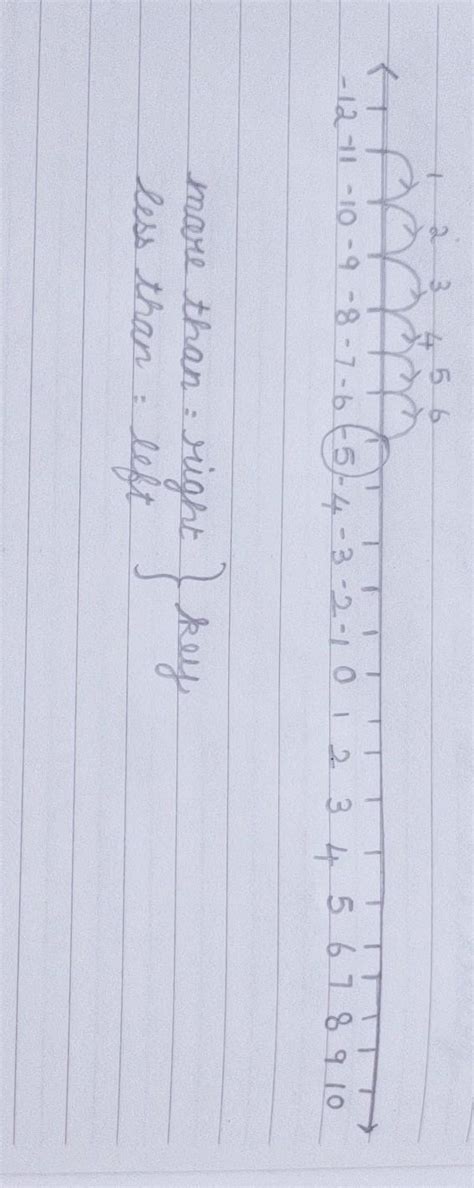 1 2 3 4 5 6
-12 -11 -10 -9 -8 -7 -6 -5 -4 -3 -2 -1 0 1 2 3 4 5 6 7 8 9 10
more than = right
less than = left } key